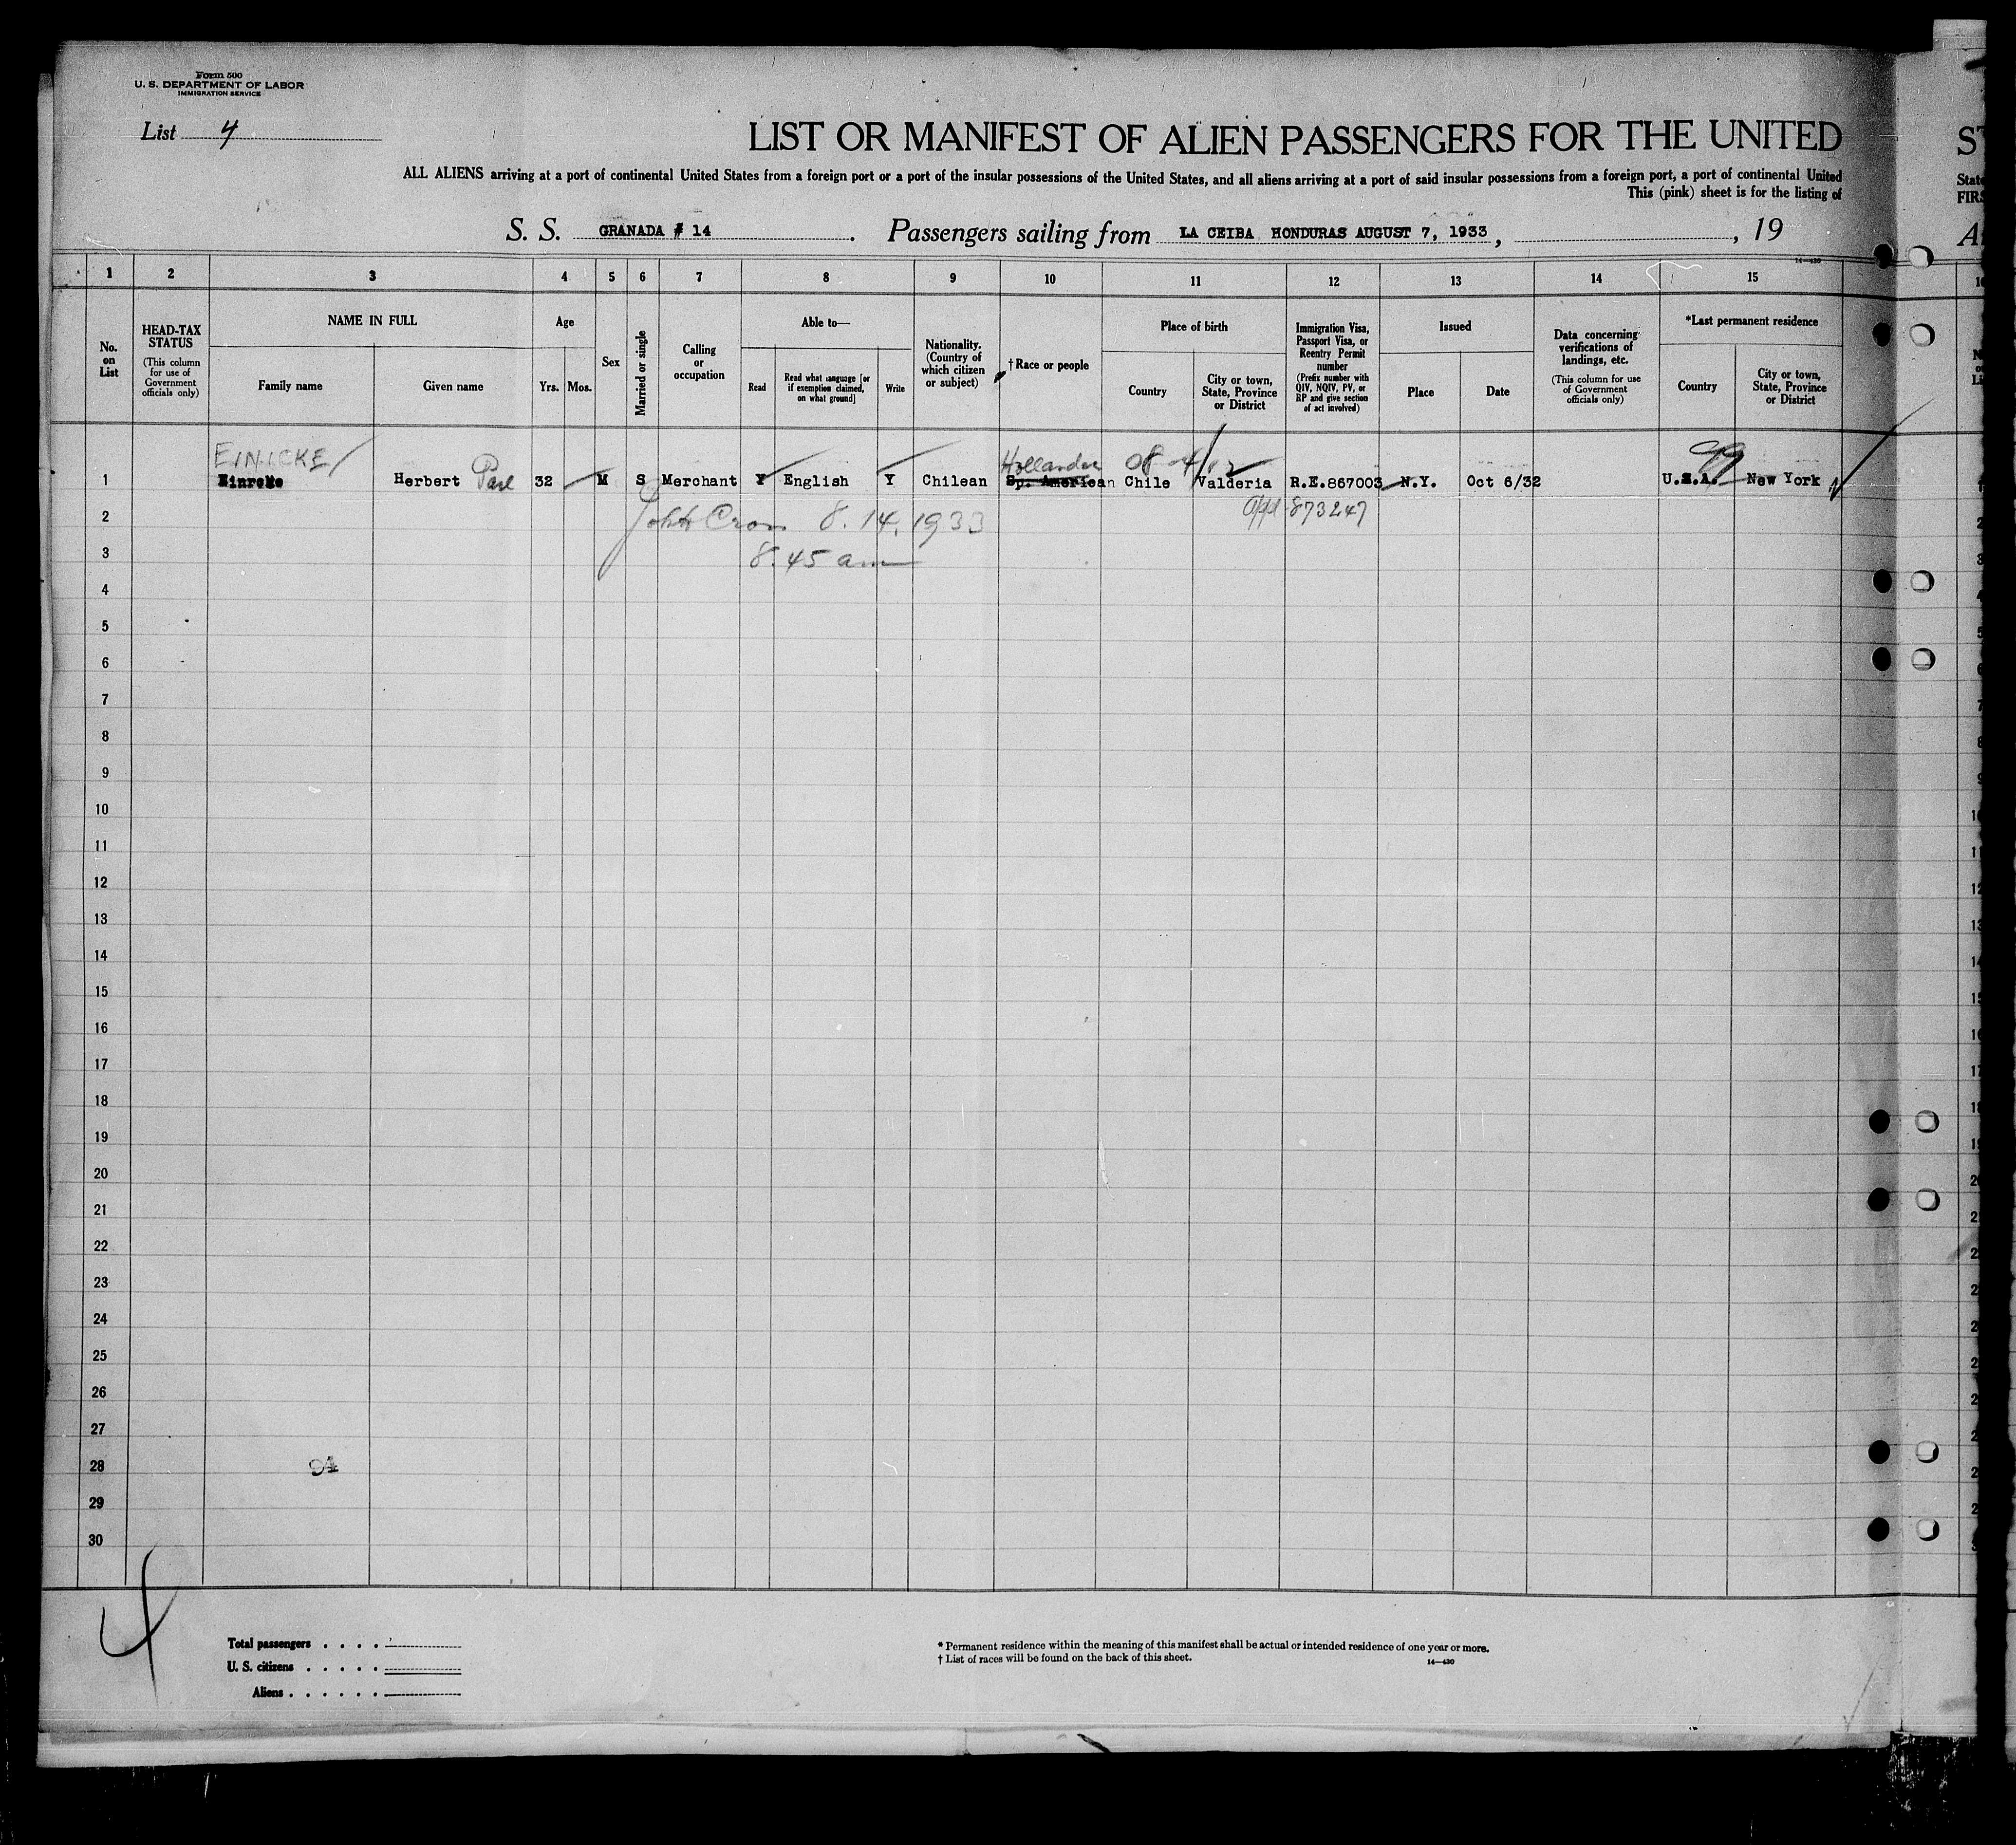 Form 500
U. S. DEPARTMENT OF LABOR
IMMIGRATION SERVICE
List 4
LIST OR MANIFEST OF ALIEN PASSENGERS FOR THE UNITED
ALL ALIENS arriving at a port of continental United States from a foreign port or a part of the insular possessions of the United States, and all aliens arriving at a port of said insular possessions from a foreign port, a port of continental United
This (pink) sheet is for the listing of
S. S. GRANADA # 14. Passengers sailing from LA CEIBA HONDURAS AUGUST 7, 1933, , 19
1 2 3 4 5 6 7 8 9 10 11 12 13 14 15
No. on List
HEAD-TAX STATUS
(This column for use of Government officials only)
NAME IN FULL
Family name
Given name
Age
Yrs.
Mos.
Sex
Married or single
Calling or occupation
Able to—
Read
Read what language [or if exemption claimed, on what ground]
Write
Nationality. (Country of which citizen or subject)
†Race or people
Place of birth
Country
City or town, State, Province or District
Immigration Visa, Passport Visa, or Reentry Permit number
(Prefix number with QIV, NQIV, PV, or RP and give section of act involved)
Issued
Place
Date
Data concerning verifications of landings, etc.
(This column for use of Government officials only)
*Last permanent residence
Country
City or town, State, Province or District
14—430
EINICKE
Hollander
1 Herbert 32 M S Merchant Y English Y Chilean Sp. American Chile Valderia R.E.867003 N.Y. Oct 6/32 U.S.A. New York
2 8.14.1933 873247
3 8.45 am
4
5
6
7
8
9
10
11
12
13
14
15
16
17
18
19
20
21
22
23
24
25
26
27
28 94
29
30
4
Total passengers
U. S. citizens
Aliens
* Permanent residence within the meaning of this manifest shall be actual or intended residence of one year or more.
† List of races will be found on the back of this sheet.
14—430